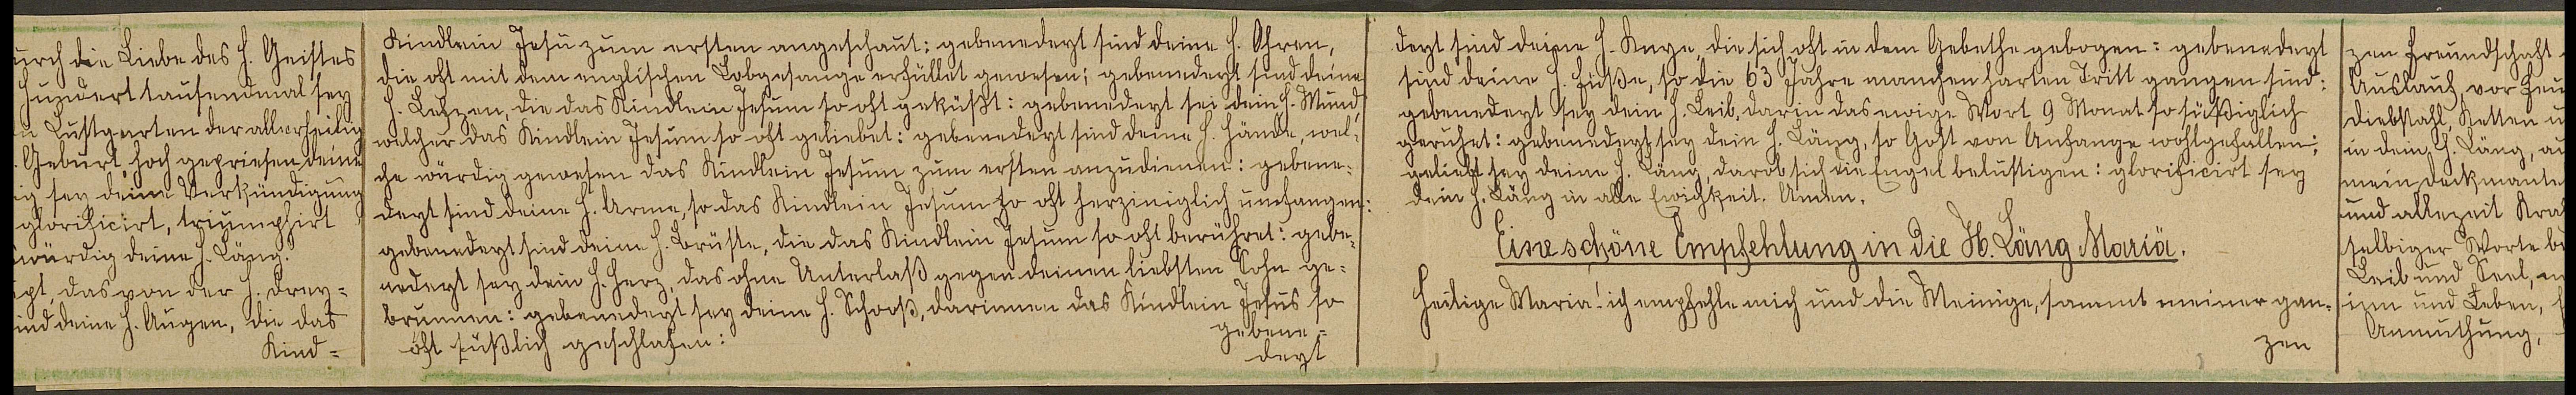 urch die Liebe des H. Geistes
hundert tausendmal sey
n Lustgarten der allerheilig
Geburt, hoch gepriesen deine
ig sey deine Verkündigung
glorificirt, triumphirt
würdig deine H. Läng.
pt, das von der H. Drey-
ind deine H. Augen, die das
Kind-
Kindlein Jesu zum ersten angeschaut: gebenedeyt sind deine H. Ohren,
die oft mit dem englischen Lobgesange erfüllet gewesen; gebenedeyt sind deine
H. Lefzen, die das Kindlein Jesum so oft geküßt: gebenedeyt sei dein H. Mund,
welcher das Kindlein Jesum so oft geliebet: gebenedeyt sind deine H. Hände, wel-
che würdig gewesen das Kindlein Jesum zum ersten anzudienen: gebene-
deyt sind deine H. Arme, so das Kindlein Jesum so oft herziniglich umfangen:
gebenedeyt sind deine H. Brüste, die das Kindlein Jesum so oft berühret: gebe-
nedeyt sey dein H. Herz, das ohne Unterlaß gegen deinen liebsten Sohn ge-
brunnen: gebenedeyt sey deine H. Schooß, darinnen das Kindlein Jesus so
oft süßlich geschlafen: gebene-
deyt
deyt sind deine H. Knye, die sich oft in dem Gebethe gebogen: gebenedeyt
sind deine H. Füße, so die 63 Jahre manchen harten Tritt gangen sind:
gebenedeyt sey dein H. Leib, darin das ewige Wort 9 Monat so süßiglich
geruhet: gebenedeyt sey dein H. Läng, so Gott von Anfange wohlgefallen;
geliebt sey deine H. Läng, darob sich die Engel belustigen: glorificirt sey
dein H. Läng in alle Ewigkeit. Amen.
Eine schöne Empfehlung in die H. Läng Mariä.
Heilige Maria! ich empfehle mich und die Meinige, sammt meiner gan-
zen
zen Freundschaft
Auslauf, vor Feu
Diebstahl, Ketten u
in dein H. Läng, au
mein Deckmante
und allezeit Kra
selbiger Worte be
Leib und Seel, m
inn und Leben,
Anmuthung,